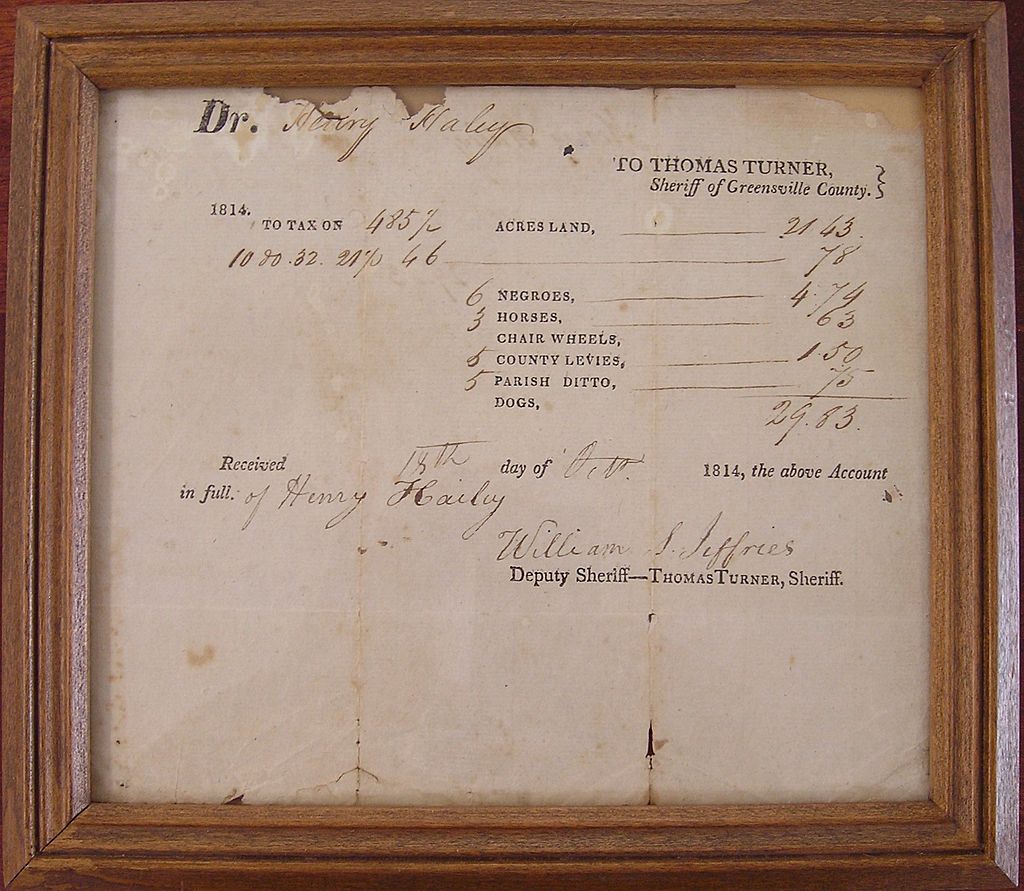 Dr. Henry Haley
TO THOMAS TURNER,
Sheriff of Greensville County. }
1814.
TO TAX ON 485½ ACRES LAND, 21 43.
10 do. 32. 46 78
6 NEGROES, 4.74
3 HORSES, 63
CHAIR WHEELS,
5 COUNTY LEVIES, 1.50
5 PARISH DITTO, 75
DOGS,
29.83.
Received 18th day of Octr. 1814, the above Account
in full. of Henry Hailey
William S. Jeffries
Deputy Sheriff—THOMAS TURNER, Sheriff.